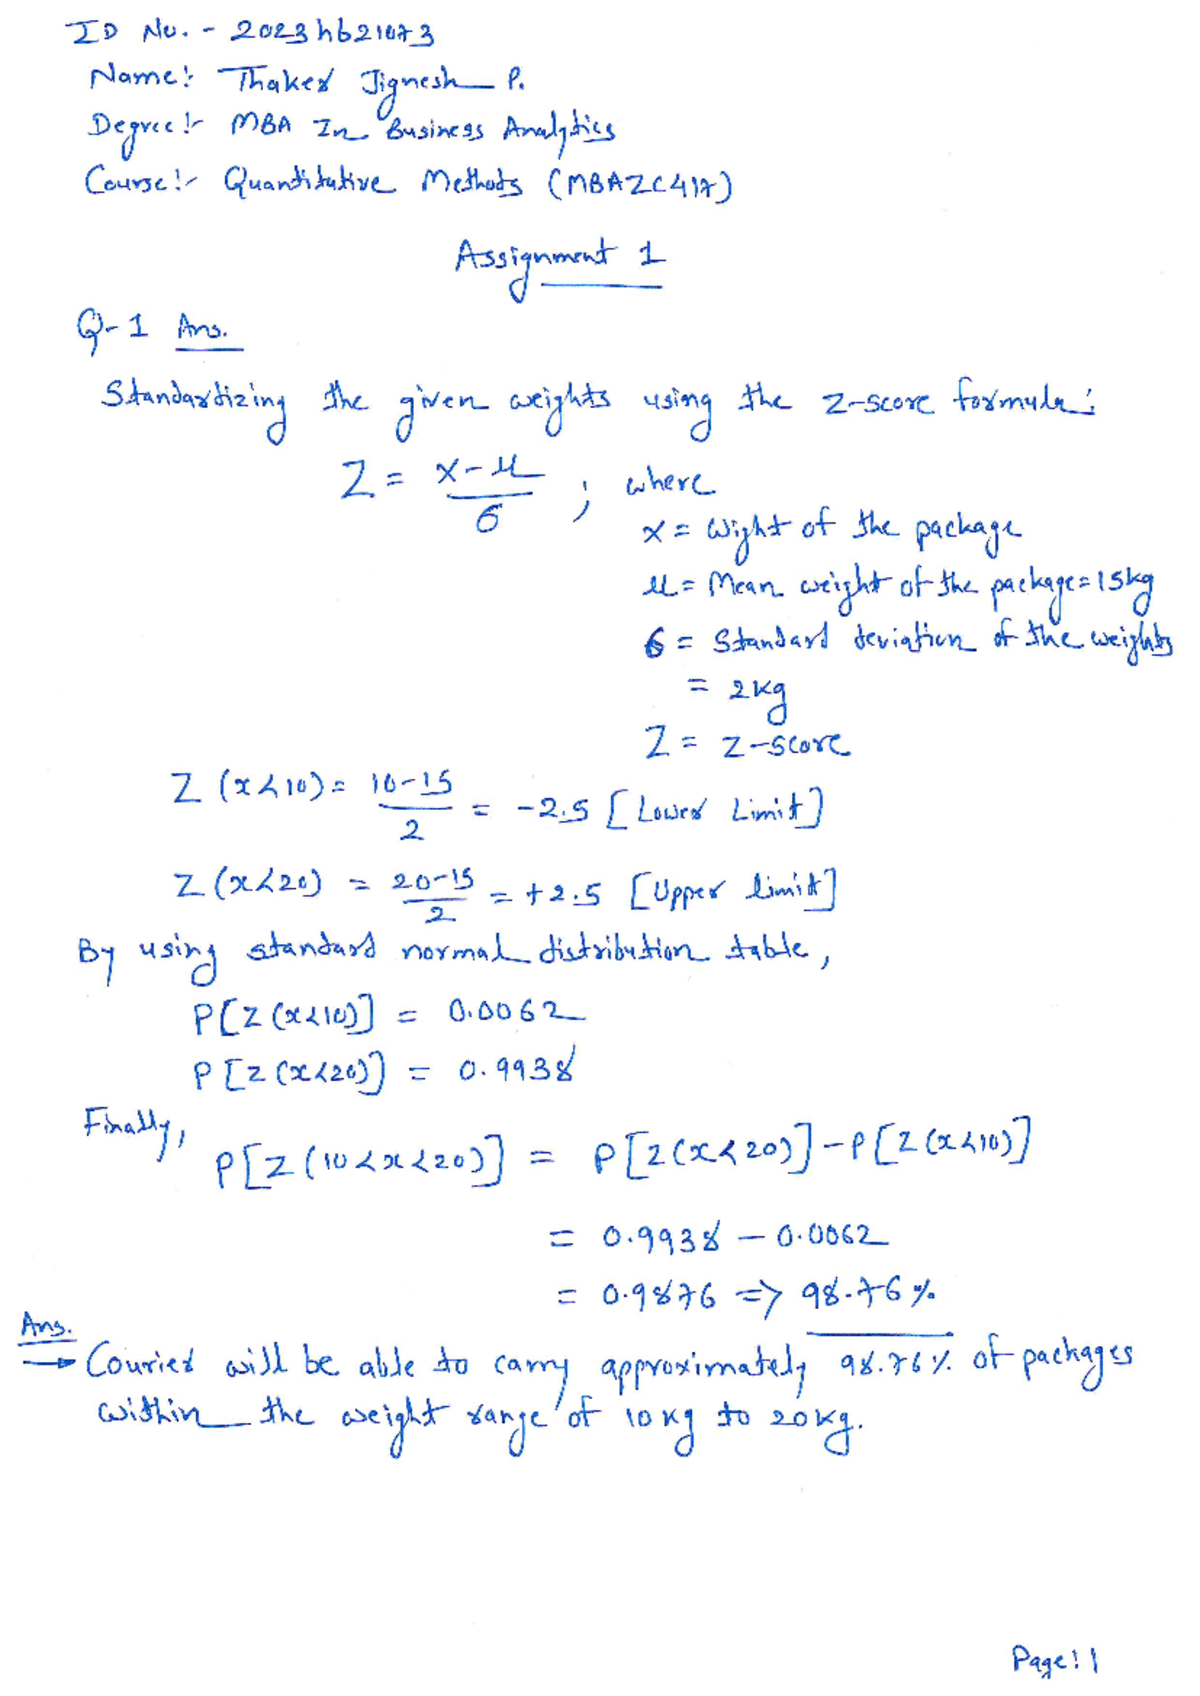 ID No. - 2023hb21073
Name:- Thaker Jignesh P.
Degree:- MBA In Business Analytics
Course:- Quantitative Methods (MBAZC417)
Assignment 1
Q-1 Ans.
Standardizing the given weights using the z-score formula:
Z = x-μ / σ ; where
x = Wight of the package
μ = Mean weight of the package = 15kg
σ = Standard deviation of the weights
= 2kg
Z = z-score
Z (x<10) = 10-15 / 2 = -2.5 [Lower Limit]
Z (x<20) = 20-15 / 2 = +2.5 [Upper limit]
By using standard normal distribution table,
P[Z(x<10)] = 0.0062
P[Z(x<20)] = 0.9938
Finally,
P[Z(10<x<20)] = P[Z(x<20)] - P[Z(x<10)]
= 0.9938 - 0.0062
= 0.9876 => 98.76%
Ans.
→ Courier will be able to carry approximately 98.76% of packages
within the weight range of 10kg to 20kg.
Page: 1